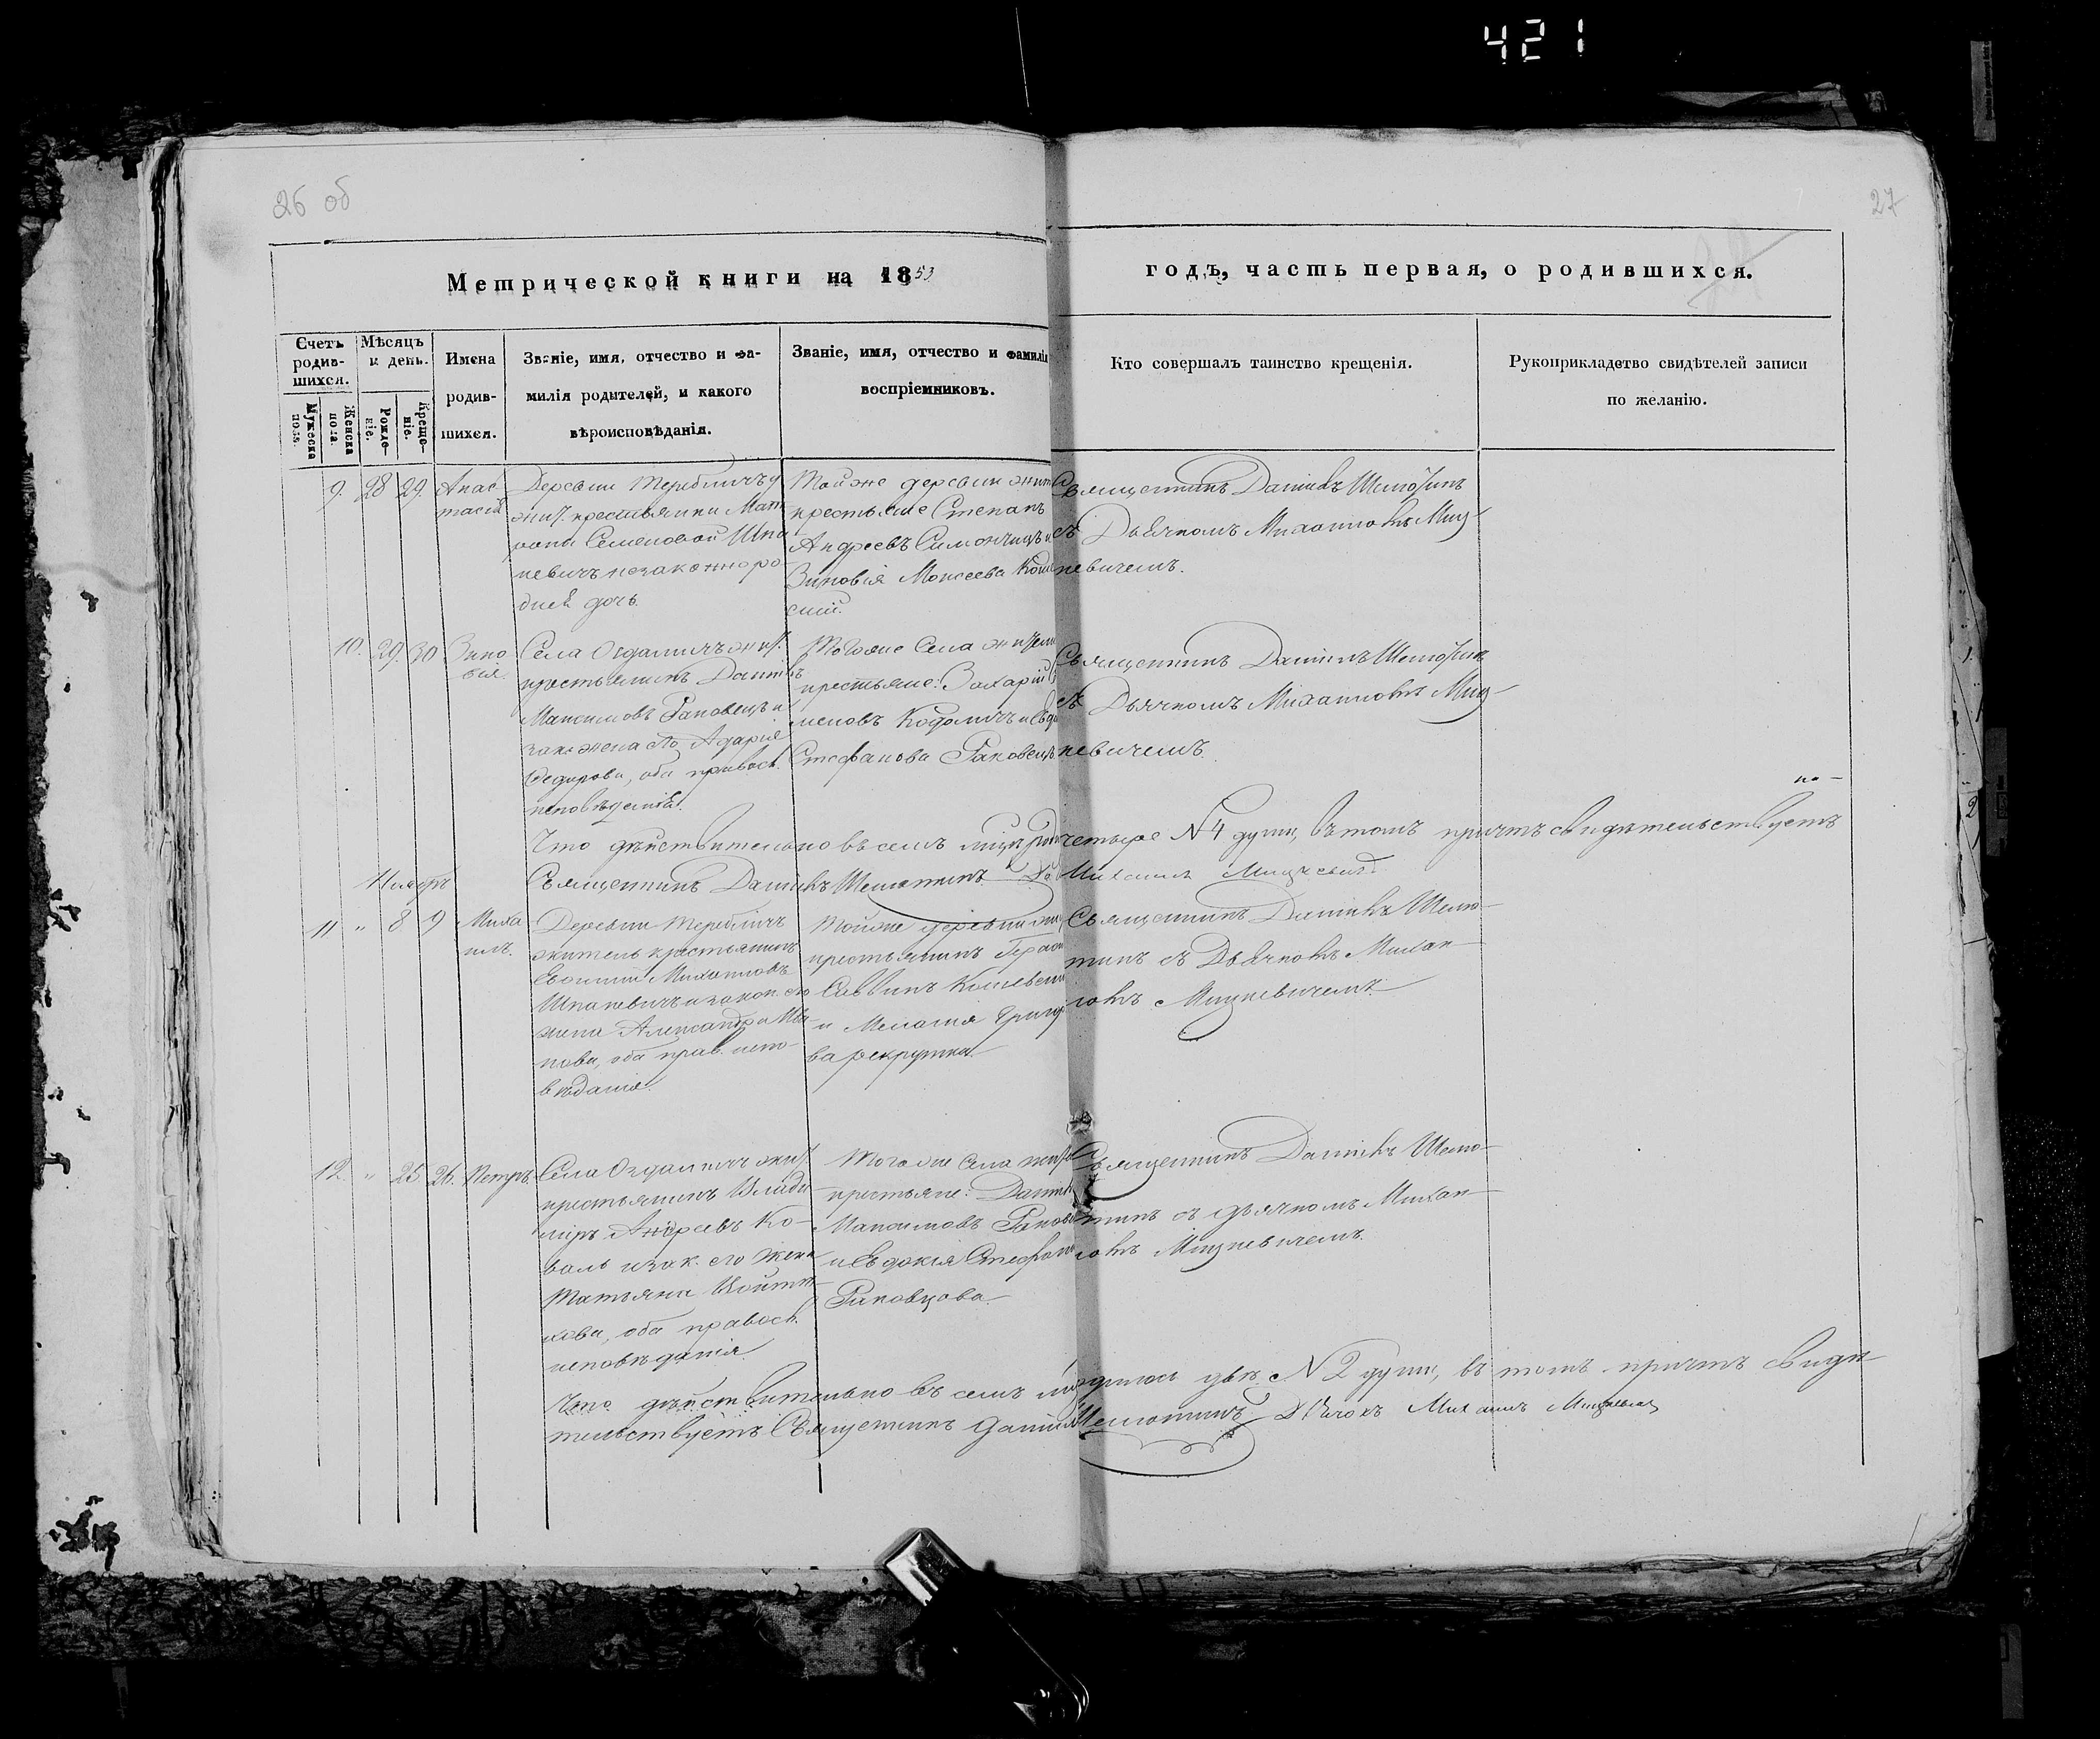 421
26 об
27
Метрической книги на 1853
годъ, часть первая, о родившихся.
Счетъ родив-шихся.
Мужеска пола.
Женска пола.
Мѣсяцъ и день.
Рожде-ніе.
Креще-ніе.
Имена
родив-
шихся.
Званіе, имя, отчество и фа-
милія родителей, и какого
вѣроисповѣданія.
Званіе, имя, отчество и фамилія
воспріемниковъ.
Кто совершалъ таинство крещенія.
Рукоприкладство свидѣтелей записи
по желанію.
9. 28 29.
Анас-
тасія
Деревни Теребличъ
жит. крестьянки Мат
рони Семеновой Шпа
невичъ незаконноро-
дная дочь.
Той же деревни жит
крестьяне Степанъ
Андреевъ Симончицъ и
Зиновія Моисеева
Священникъ Даніилъ Шелютинъ
съ Дьячкомъ Михаиломъ Миц-
кевичемъ.
10. 29. 30
Зино
вія.
Села Огдамичъ жит.
крестьянинъ Даніилъ
Максимовъ Раковецъ и
зак. жена его Дарія
Федорова, оба правосл.
исповѣданія.
Того же Села жители
крестьяне: Захарій
меновъ Кодоличъ и Евдо
Стефанова Раковецъ
Священникъ Даніилъ Шелютинъ
съ Дьячкомъ Михаиломъ Миц-
кевичемъ.
Что дѣйствительно въ семъ мѣсяцѣ четыре №4 души, въ томъ причтъ свидѣтельствуетъ
Священникъ Даніилъ Шелютинъ Михаилъ Мицкевичъ
Ноябрь
11 " 8 9
Миха
илъ.
Деревни Теребличъ
житель крестьянинъ
Евфимій Михаиловъ
Шпаневичъ и закон. его
жена Александра Ива-
нова, оба прав. испо-
вѣданія.
Той же деревни жит
крестьянинъ Герасимъ
Саввинъ
и Меланія Григорье
ва рекрутка
Священникъ Даніилъ Шелю-
тинъ съ Дьячкомъ Михаи-
ломъ Мицкевичемъ.
12. " 25. 26.
Петръ.
Села Огдамичъ жит.
крестьянинъ Влади
міръ Андреевъ Ко-
валь и зак. его жена
Татьяна Войти-
хова, оба правосл.
исповѣданія.
Того же села жит.
крестьяне: Даніилъ
Максимовъ Раковецъ
и Евдокія Стефанова
Раковцова.
Священникъ Даніилъ Шелю-
тинъ съ дьячкомъ Михаи-
ломъ Мицкевичемъ.
Что дѣйствительно въ семъ двѣ №2 души, въ томъ причтъ свидѣ-
тельствуетъ Священникъ Даніилъ Шелютинъ Дьячокъ Михаилъ Мицкевичъ